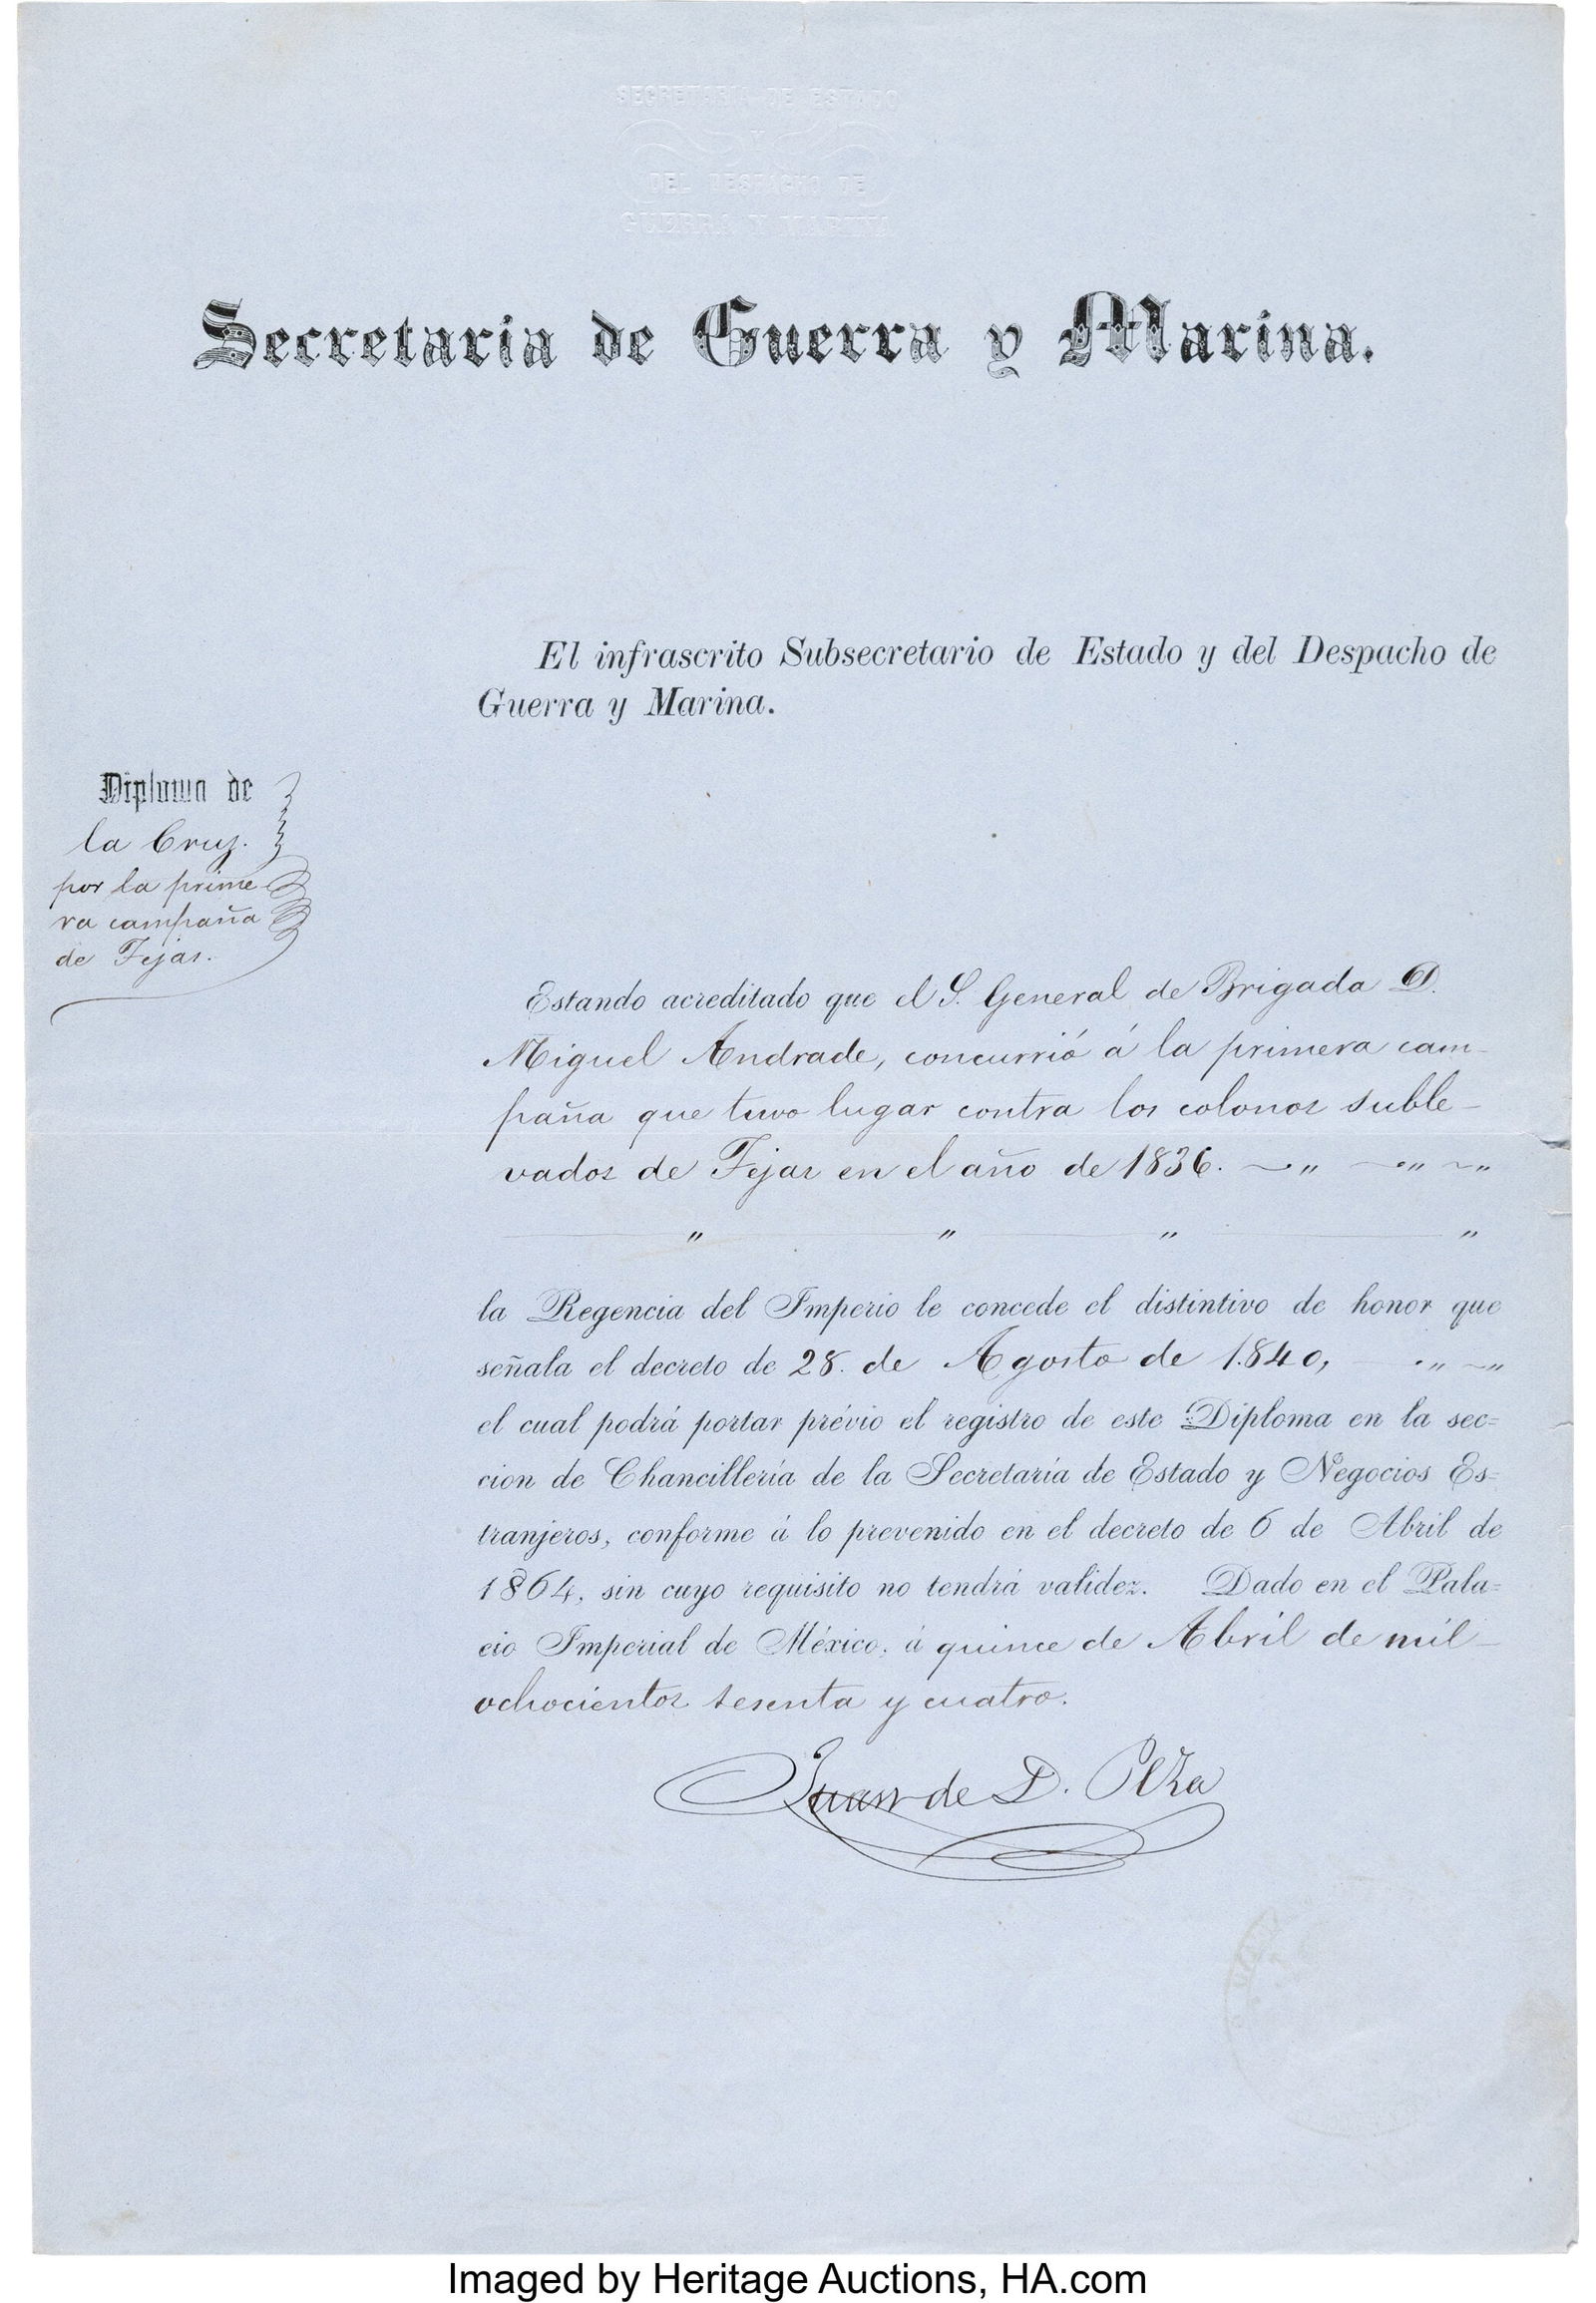 SECRETARIA DE ESTADO
Y
DEL DESPACHO DE
GUERRA Y MARINA
Secretaria de Guerra y Marina.
El infrascrito Subsecretario de Estado y del Despacho de
Guerra y Marina.
Diploma de
la Cruz.
por la prime
ra campaña
de Tejas.
Estando acreditado que el S. General de Brigada D.
Miguel Andrade, concurrió á la primera cam-
paña que tuvo lugar contra los colonos suble-
vados de Tejas en el año de 1836. ~" ~" ~"
" " " "
la Regencia del Imperio le concede el distintivo de honor que
señala el decreto de 28. de Agosto de 1.840, ." ~"
el cual podrá portar prévio el registro de este Diploma en la sec=
cion de Chancillería de la Secretaría de Estado y Negocios Es=
tranjeros, conforme á lo prevenido en el decreto de 6 de Abril de
1864, sin cuyo requisito no tendrá validez. Dado en el Pala=
cio Imperial de México, á quince de Abril de mil
ochocientos sesenta y cuatro.
Juan de D. Peza
Imaged by Heritage Auctions, HA.com